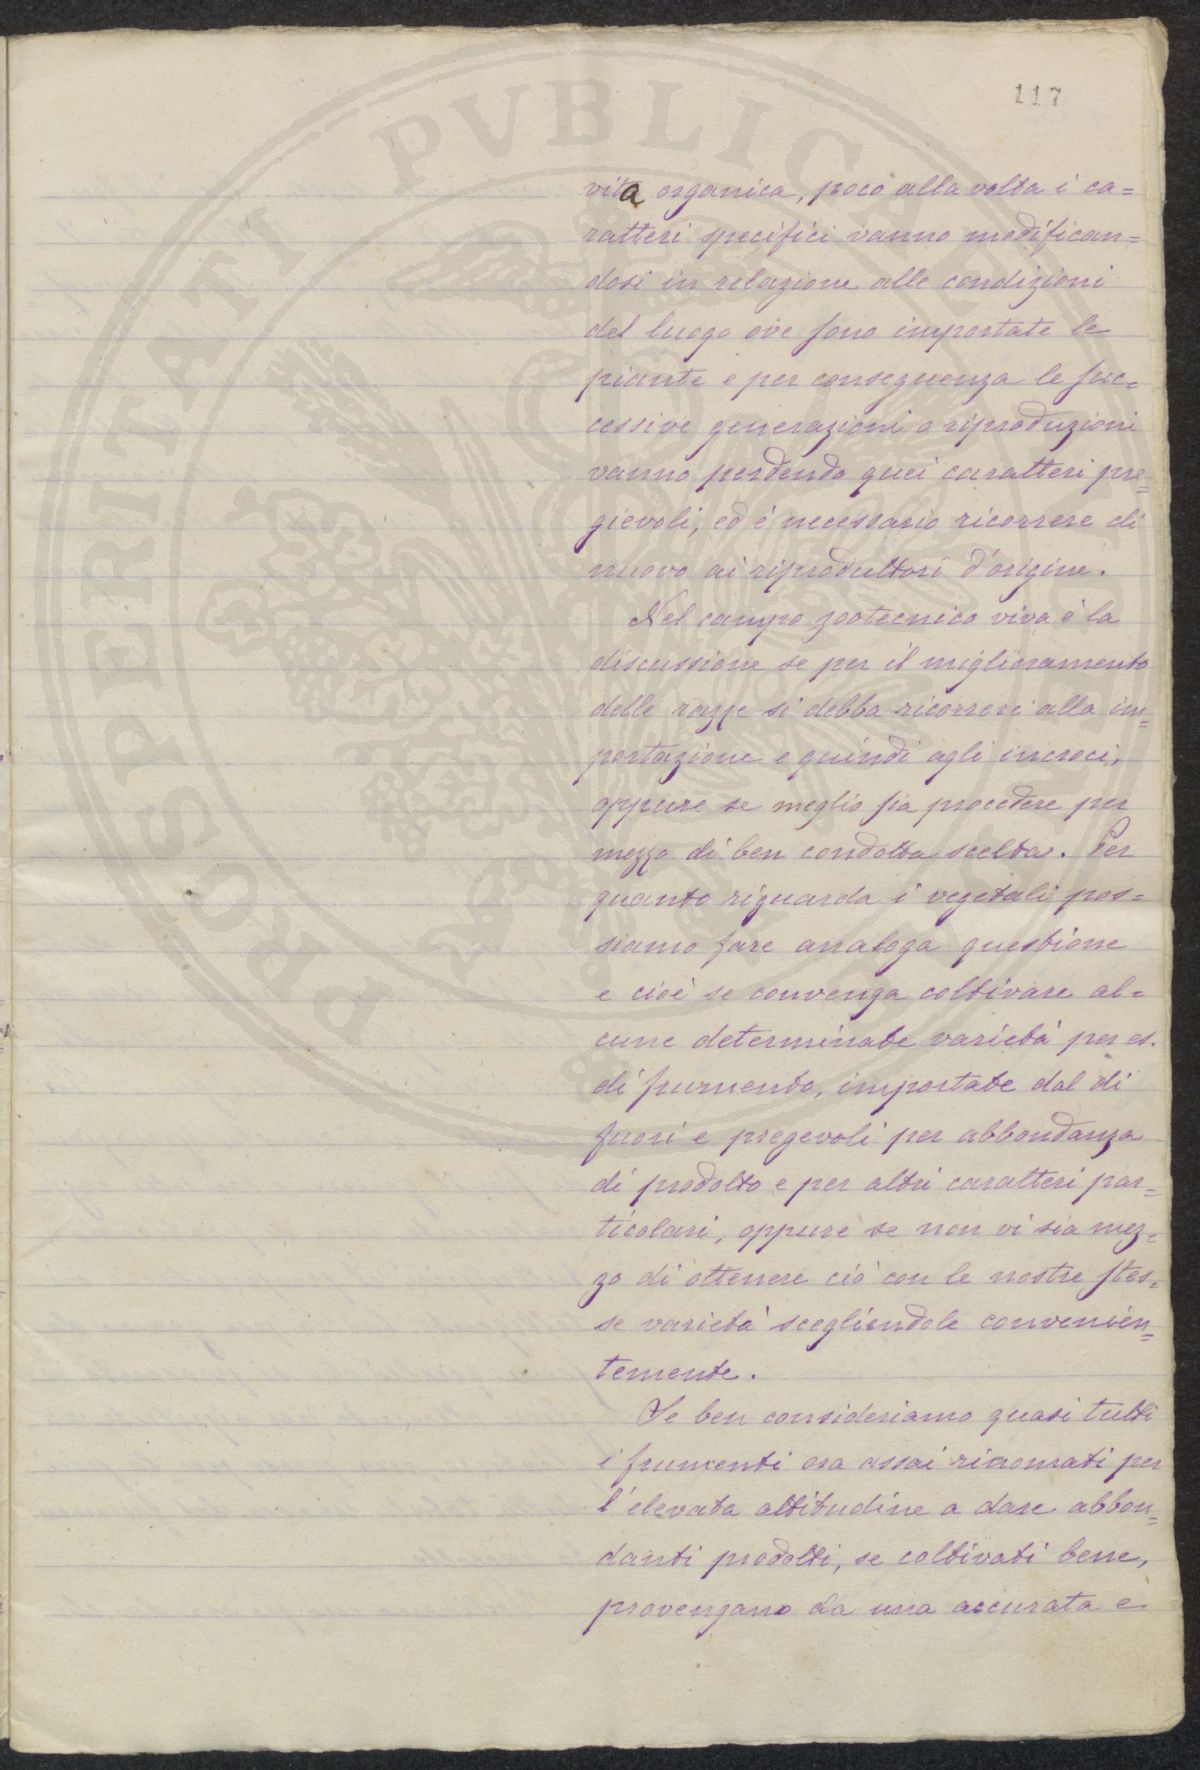 117
vita organica, poco alla volta i ca=
ratteri specifici vanno modifican=
dosi in relazione alle condizioni
del luogo ove sono importate le
piante e per conseguenza le suc=
cessive generazioni o riproduzioni
vanno perdendo quei caratteri pre=
gievoli, ed è necessario ricorrere di
nuovo ai riproduttori d'origine.
Nel campo zootecnico viva è la
discussione se per il miglioramento
delle razze si debba ricorrere alla im=
portazione e quindi agli incroci,
oppure se meglio sia procedere per
mezzo di ben condotta scelta. Per
quanto riguarda i vegetali pos=
siamo fare analoga questione
e cioè se convenga coltivare al=
cune determinate varietà per es.
di frumento, importate dal di
fuori e pregevoli per abbondanza
di prodotto e per altri caratteri par=
ticolari, oppure se non vi sia mez=
zo di ottenere ciò con le nostre stes=
se varietà scegliendole convenien=
temente.
Se ben consideriamo quasi tutti
i frumenti ora assai rinomati per
l'elevata attitudine a dare abbon=
danti prodotti, se coltivati bene,
provengano da una accurata e
PROSPERITATI PVBLICAE